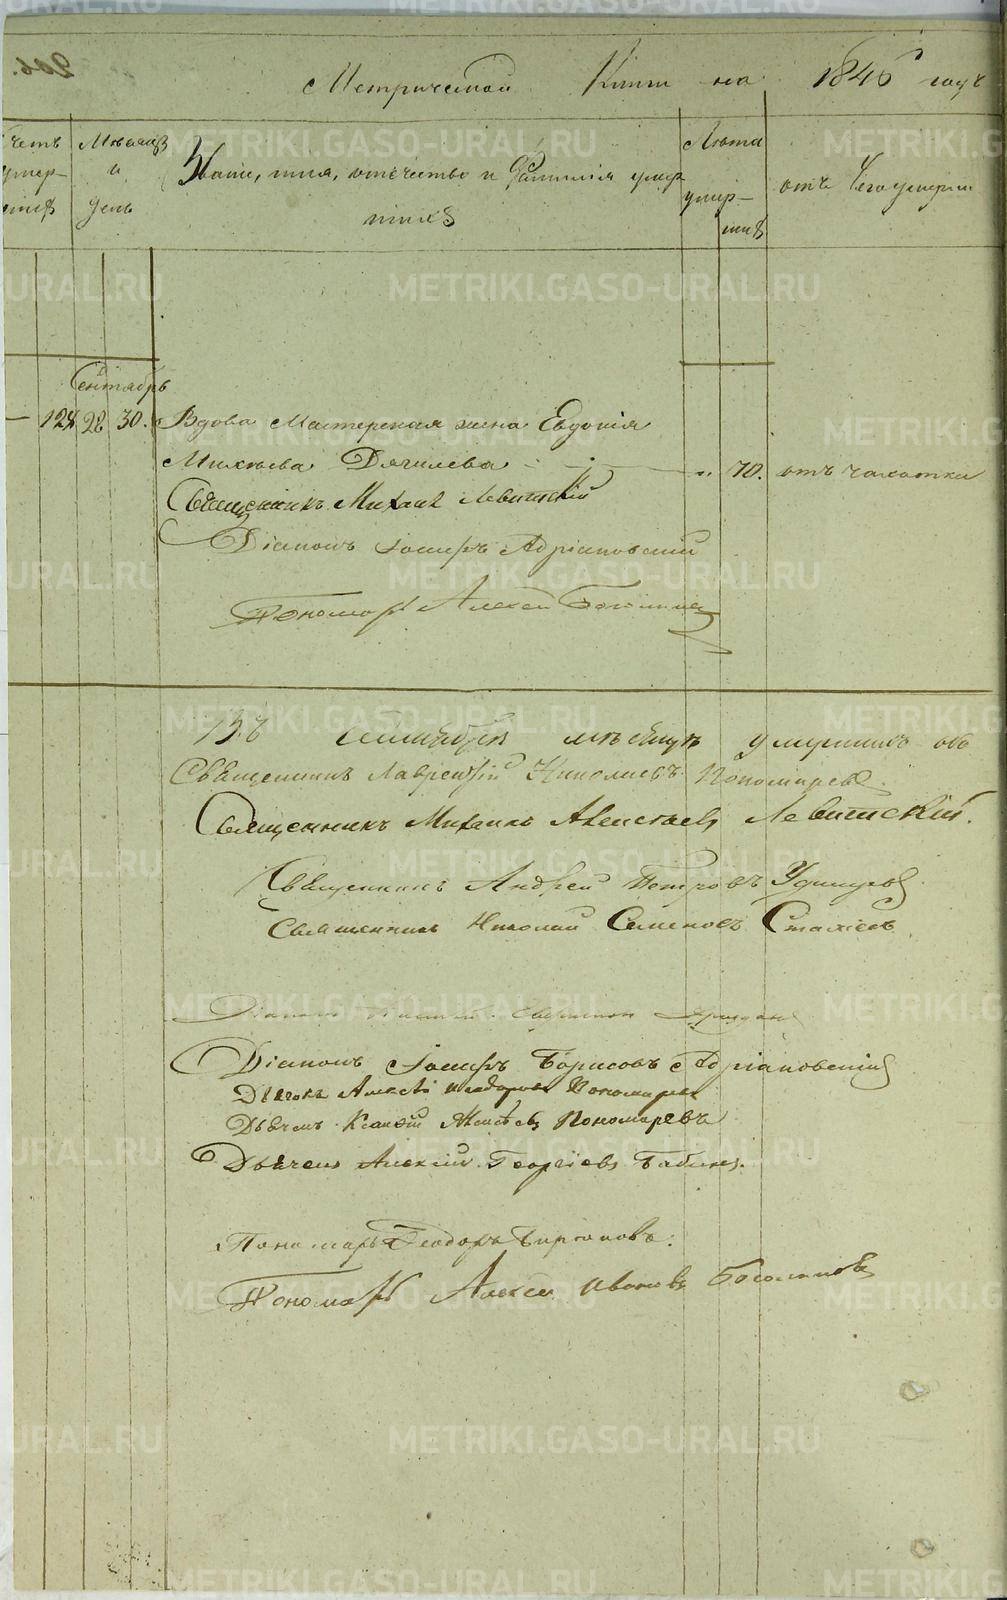 206.
Метрической Книги на 1846 годъ
Счетъ умер-шихъ
Мѣсяцъ и день
Званіе, имя, отечество и фамилія умер-
шихъ
Лѣта умер-шихъ
отъ чего умерли
Сентябрь
— 128 28 30. Вдова Мастерская жена Евдокія
Михѣева Дягилева — „ 70. отъ чахотки
Священникъ Михаилъ Левитскій
Діаконъ Іосифъ Адріановскій
Пономарь Алексей
Въ сентябрѣ мѣсяцѣ умершихъ
Священникъ Лаврентій Николаевъ Пономаревъ
Священникъ Михаилъ Алексѣевъ Левитскій.
Священникъ Андрей Петровъ Удинцевъ
Священникъ Николай Семеновъ Стахіевъ
Діаконъ
Діаконъ Іосифъ Борисовъ Адріановскій
Дьячекъ Алексѣй Пономаревъ
Дьячекъ Пономаревъ
Дьячекъ Алексій Георгіевъ Бабинъ.
Пономарь Ѳеодоръ
Пономарь Алексей Ивановъ
METRIKI.GASO-URAL.RU